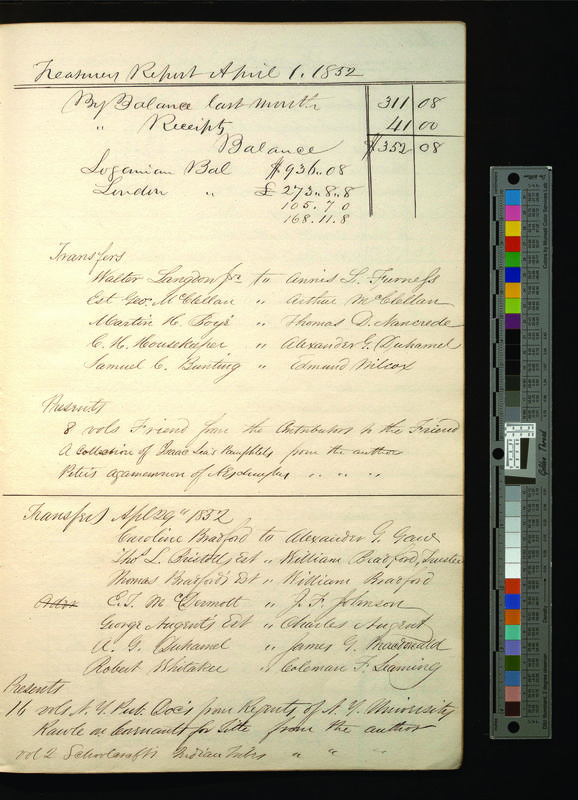 Treasurers Report April 1. 1852
By Balance last month 311 08
" Receipts 41 00
Balance $352 08
Loganian Bal $936.08
London " £ 273.8.8
105.7.0
168.11.8
Transfers
Walter Langdon Jr to Annis L. Furness
Est Geo. McClellan " Arthur McClellan
Martin H. Boyè " Thomas D. Nancrede
C. H. Housekeeper " Alexander G. Duhamel
Samuel C. Bunting " Edmund Wilcox
Presents
8 vols Friend from the Contributors to the Friend
A Collection of Isaac Lea's Pamphlets from the author
Peters agamemnon of " " "
Transfers Apl 29" 1852
Caroline Bradford to Alexander G.
Thos L. Est " William Bradford, Trustee
Thomas Bradford Est " William Bradford
E. J. McDermott " J. F. Johnson
George Est " Charles
A. G. Duhamel " James G.
Robert Whitaker " Coleman F. Leaming
Presents
16 vols N. Y. Pub. Doc's from Regents of N. Y. University
Rawle on Covenants for Title from the author
vol 2 Schoolcraft's Indian tribes " " "